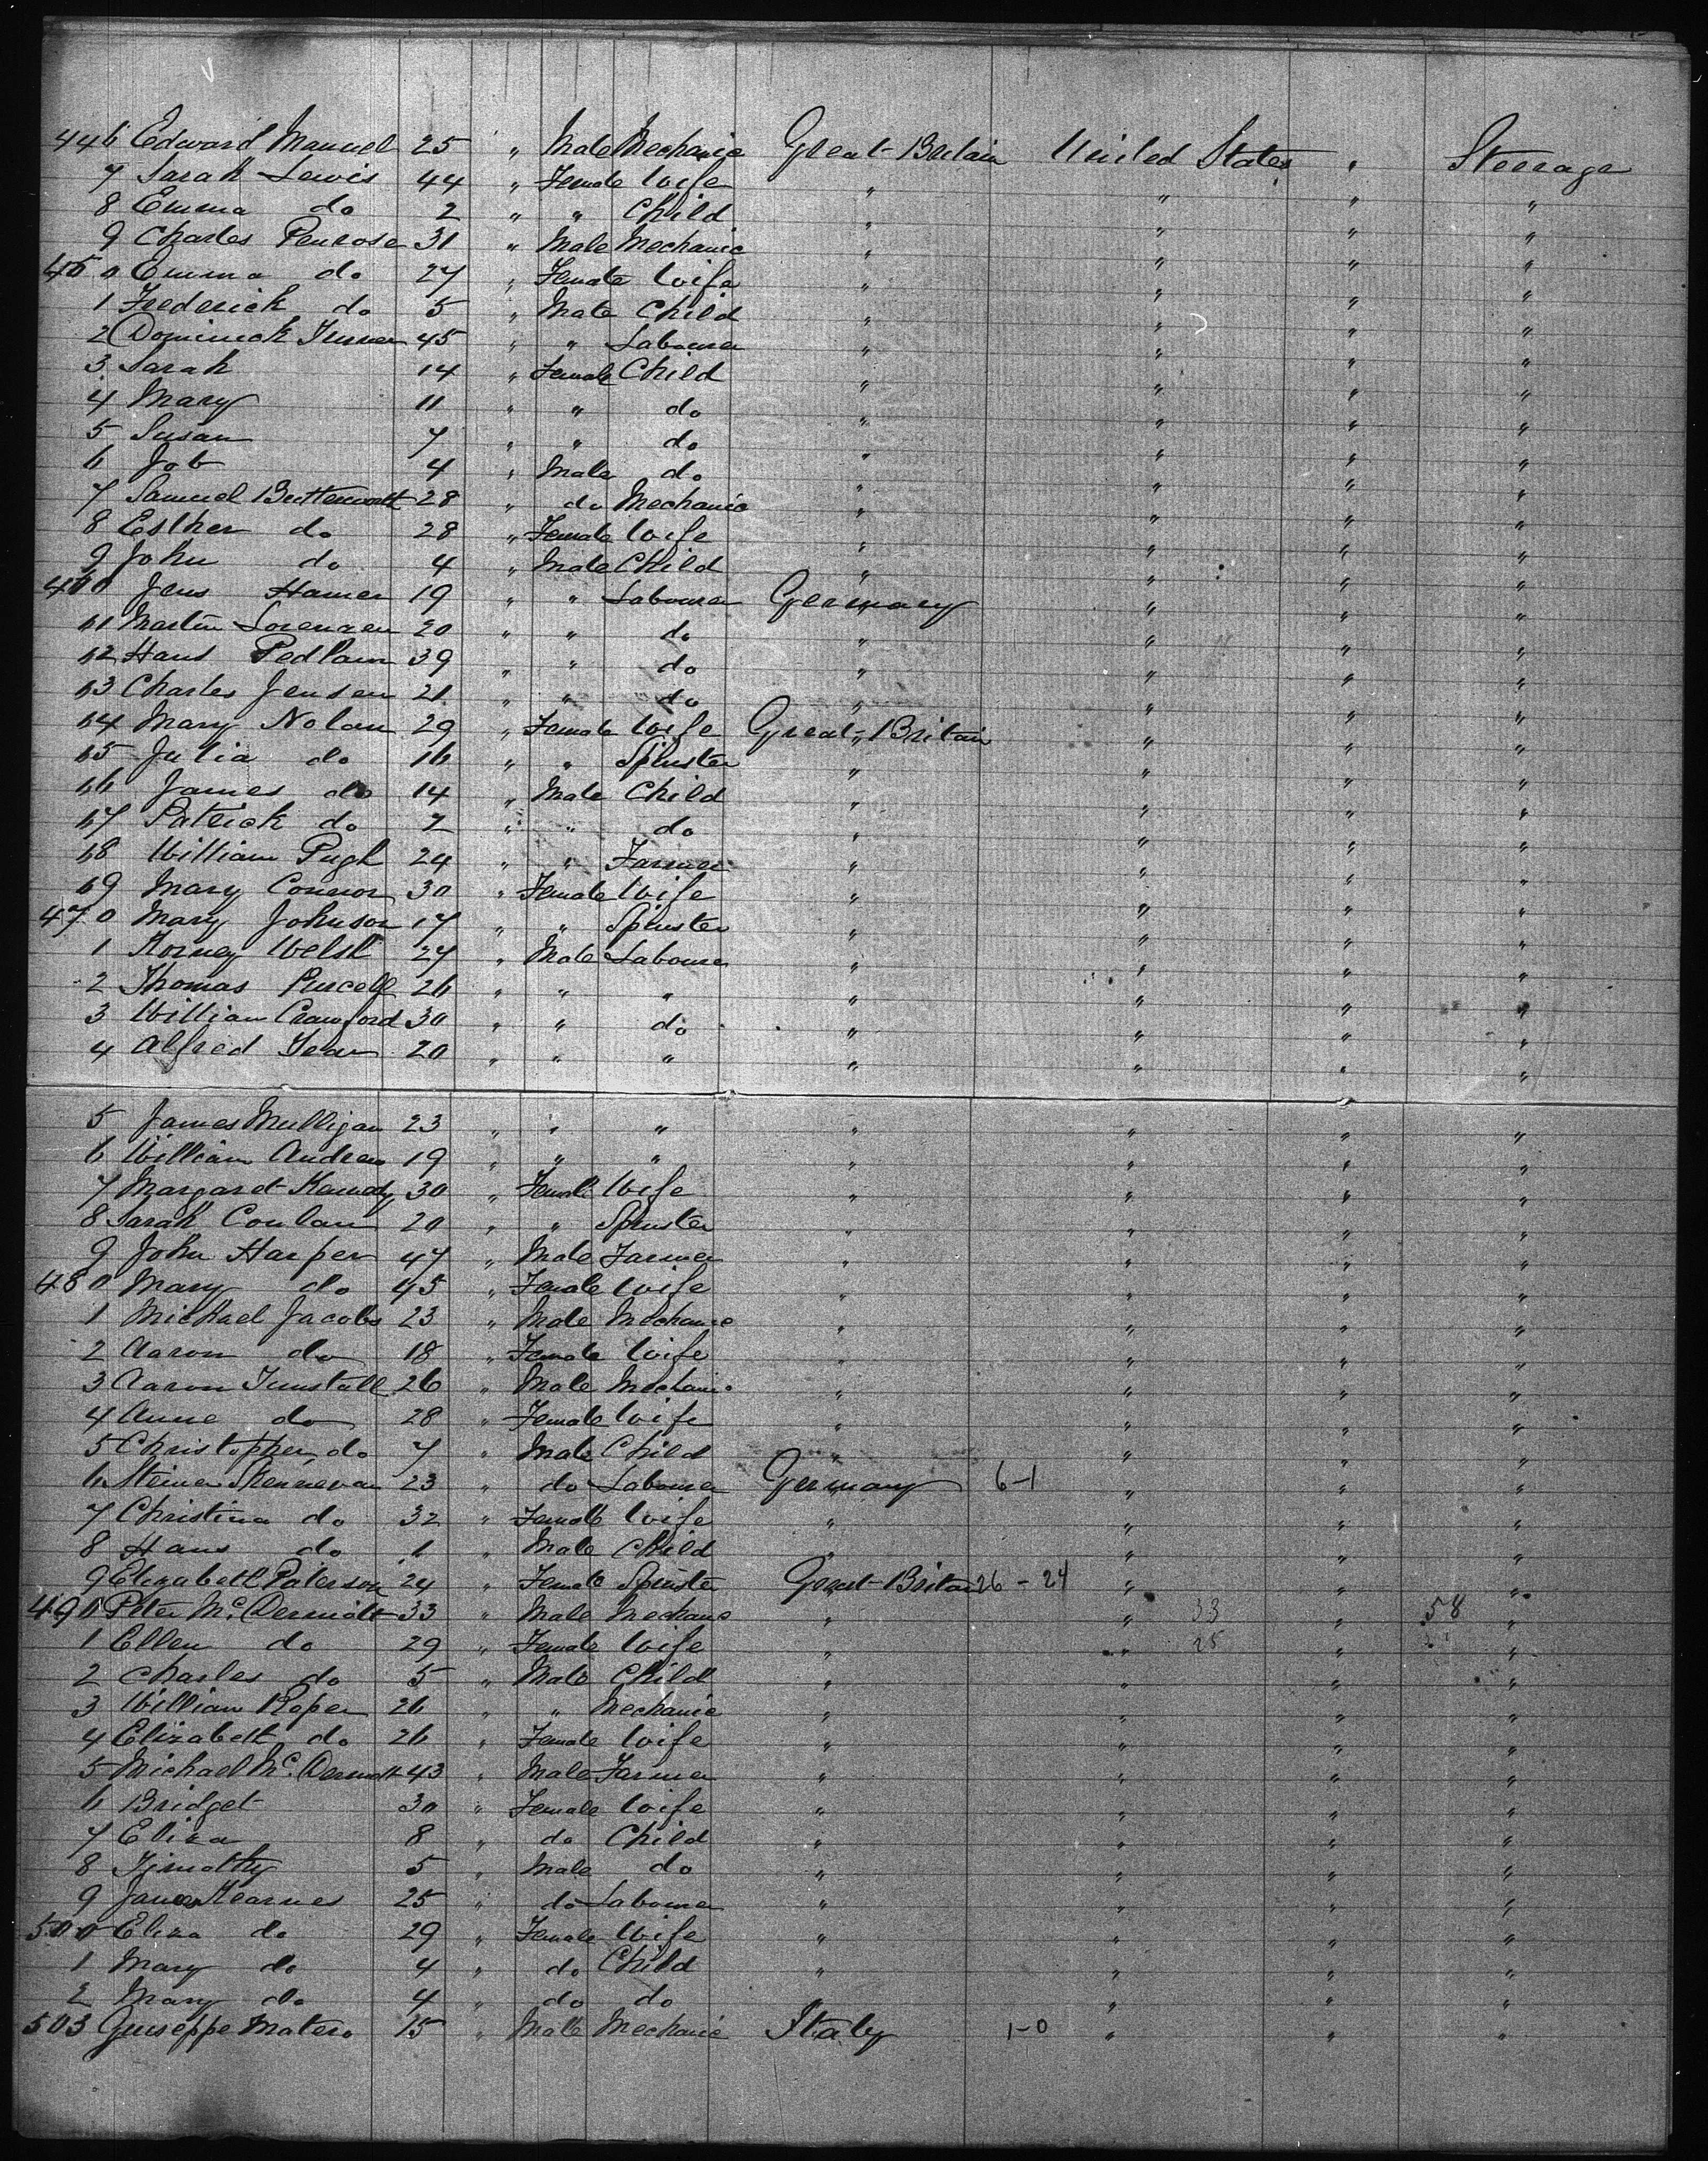 446 Edward Manuel 25 " Male Mechanic Great-Britain United States " Steerage
7 Sarah Lewis 44 " Female Wife " " " "
8 Emma do 2 " " Child " " " "
9 Charles Penrose 31 " Male Mechanic " " " "
450 Emma do 27 " Female Wife " " " "
1 Frederick do 5 " Male Child " " " "
2 Dominick Turner 45 " " Labourer " " " "
3 Sarah 14 " Female Child " " " "
4 Mary 11 " " do " " " "
5 Susan 7 " " do " " " "
6 Job 4 " Male do " " " "
7 Samuel Butterworth 28 " do Mechanic " " " "
8 Esther do 28 " Female Wife " " " "
9 John do 4 " Male Child " " " "
460 Jens Hamer 19 " " Labourer Germany " " "
61 Martin Lorenzen 20 " " do " " " "
62 Hans 39 " " do " " " "
63 Charles Jensen 21 " " do " " " "
64 Mary Nolan 29 " Female Wife Great-Britain " " "
65 Julia do 16 " " Spinster " " " "
66 James do 14 " Male Child " " " "
67 Patrick do 2 " " do " " " "
68 William Pugh 24 " " Farmer " " " "
69 Mary Connor 30 " Female Wife " " " "
470 Mary Johnson 17 " " Spinster " " " "
1 Welsh 27 " Male Labourer " " " "
2 Thomas Purcell 26 " " " " " " "
3 William Crawford 30 " " do " " " "
4 Alfred 20 " " " " " " "
5 James Mulligan 23 " " " " " " "
6 William Andrew 19 " " " " " " "
7 Margaret Kennedy 30 " Female Wife " " " "
8 Sarah Conlan 20 " " Spinster " " " "
9 John Harper 47 " Male Farmer " " " "
480 Mary do 45 " Female Wife " " " "
1 Michael Jacobs 23 " Male Mechanic " " " "
2 Aaron do 18 " Female Wife " " " "
3 Aaron Tunstall 26 " Male Mechanic " " " "
4 Anne do 28 " Female Wife " " " "
5 Christopher do 7 " Male Child " " " "
6 23 " do Labourer Germany 6-1 " " "
7 Christina do 32 " Female Wife " " " "
8 Hans do 1 " Male Child " " " "
9 Elizabeth Paterson 24 " Female Spinster Great-Britain 26-24 " " "
490 Peter McDermott 33 " Male Mechanic " " 33 " 58 "
1 Ellen do 29 " Female Wife " " 25 " "
2 Charles do 5 " Male Child " " " "
3 William Roper 26 " " Mechanic " " " "
4 Elizabeth do 26 " Female Wife " " " "
5 Michael McDermott 43 " Male Farmer " " " "
6 Bridget 30 " Female Wife " " " "
7 Eliza 8 " do Child " " " "
8 Timothy 5 " Male do " " " "
9 James Kearnes 25 " do Labourer " " " "
500 Eliza do 29 " Female Wife " " " "
1 Mary do 4 " do Child " " " "
2 Mary do 4 " do do " " " "
503 Guiseppe Matero 15 " Male Mechanic Italy 1-0 " " "